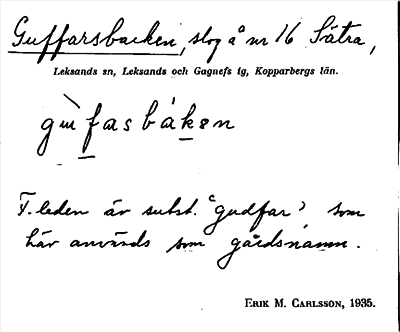 Guffarsbacken, slog å nr 16 Sätra,
Leksands sn, Leksands och Gagnefs tg, Kopparbergs län.
gùfasbákən
F. leden är subst. "gudfar" som
här används som gårdsnamn.
ERIK M. CARLSSON, 1935.